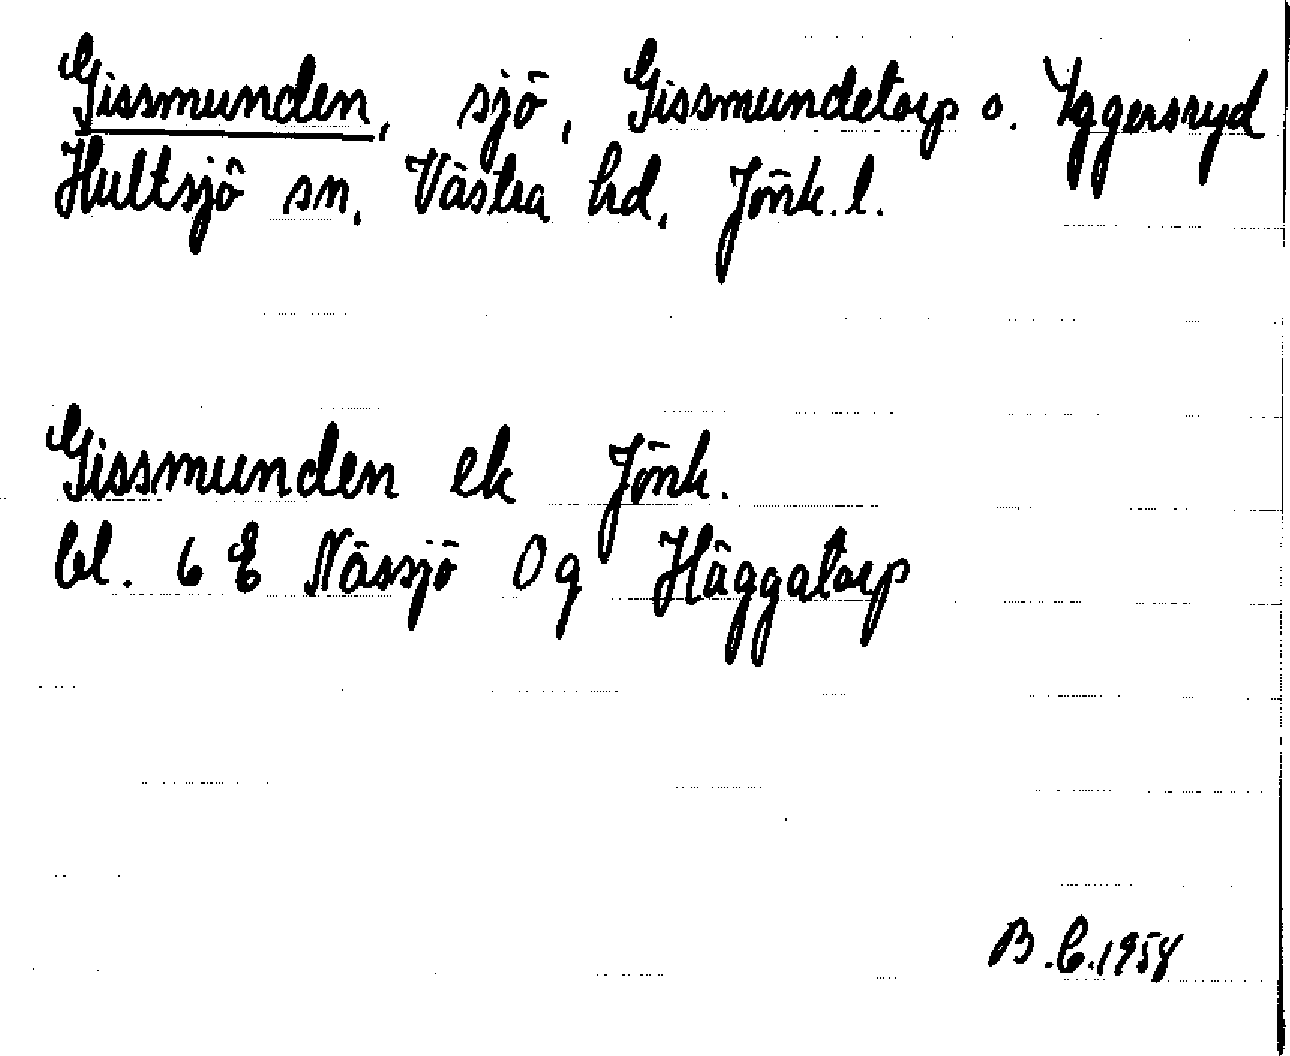 Gissmunden, sjö, Gissmundetorp o. Yggersryd
Hultsjö sn, Västra hd, Jönk. l.
Gissmunden ek Jönk.
bl. 6 E Nässjö 0g Häggatorp
B.C. 1958